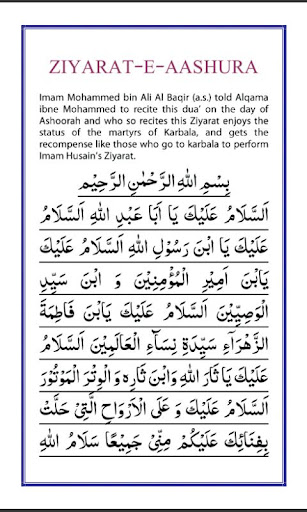 ZIYARAT-E-AASHURA
Imam Mohammed bin Ali Al Baqir (a.s.) told Alqama
ibne Mohammed to recite this dua' on the day of
Ashoorah and who so recites this Ziyarat enjoys the
status of the martyrs of Karbala, and gets the
recompense like those who go to karbala to perform
Imam Husain's Ziyarat.
بِسْمِ اللهِ الرَّحْمٰنِ الرَّحِيْمِ
اَلسَّلَامُ عَلَيْكَ يَا اَبَا عَبْدِ اللهِ اَلسَّلَامُ
عَلَيْكَ يَا ابْنَ رَسُوْلِ اللهِ اَلسَّلَامُ عَلَيْكَ
يَابْنَ اَمِيْرِ الْمُؤْمِنِيْنَ وَ ابْنَ سَيِّدِ
الْوَصِيِّيْنَ اَلسَّلَامُ عَلَيْكَ يَابْنَ فَاطِمَةَ
الزَّهْرَاءِ سَيِّدَةِ نِسَاءِ الْعَالَمِيْنَ اَلسَّلَامُ
عَلَيْكَ يَا ثَارَ اللهِ وَابْنَ ثَارِهٖ وَ الْوِتْرَ الْمَوْتُوْرَ
اَلسَّلَامُ عَلَيْكَ وَ عَلَى الْاَرْوَاحِ الَّتِيْ حَلَّتْ
بِفِنَائِكَ عَلَيْكُمْ مِنِّيْ جَمِيْعًا سَلَامُ اللهِ